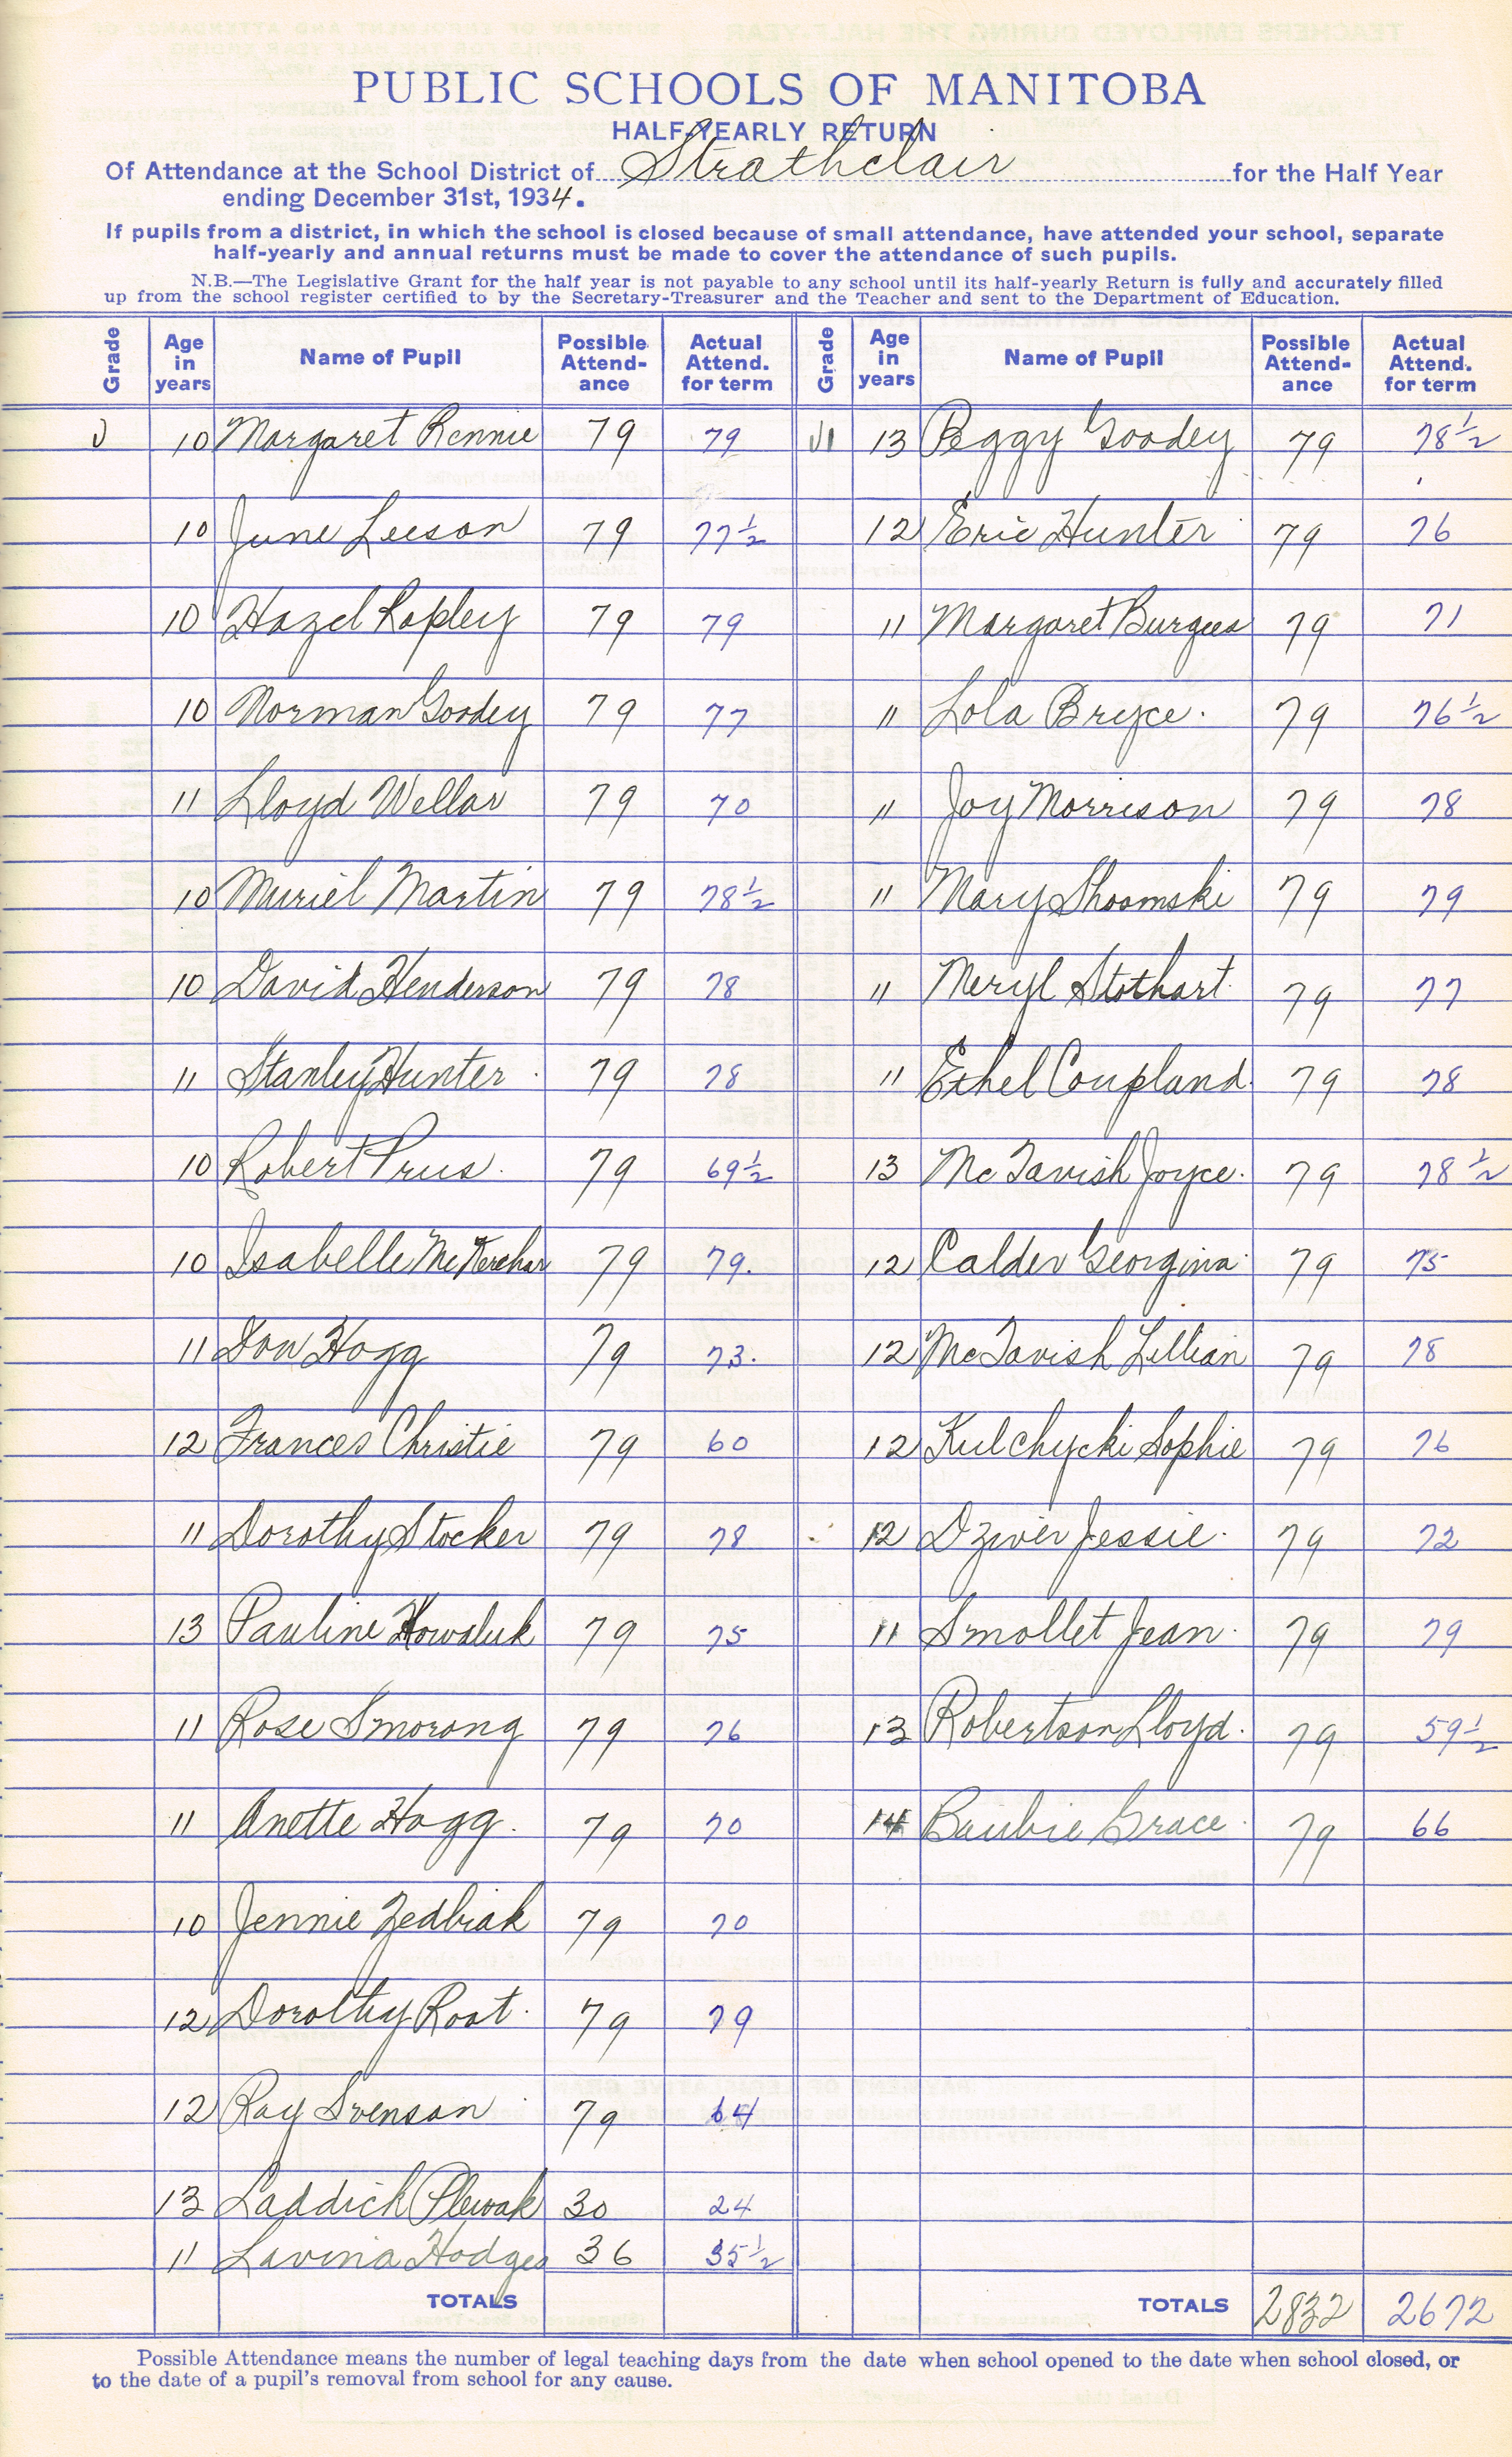 PUBLIC SCHOOLS OF MANITOBA
HALF-YEARLY RETURN
Of Attendance at the School District of Strathclair for the Half Year
ending December 31st, 1934.
If pupils from a district, in which the school is closed because of small attendance, have attended your school, separate
half-yearly and annual returns must be made to cover the attendance of such pupils.
N.B.—The Legislative Grant for the half year is not payable to any school until its half-yearly Return is fully and accurately filled
up from the school register certified to by the Secretary-Treasurer and the Teacher and sent to the Department of Education.
Grade Age in years Name of Pupil Possible Attend-ance Actual Attend. for term Grade Age in years Name of Pupil Possible Attend-ance Actual Attend. for term
V 10 Margaret Rennie 79 79 VI 13 Peggy Goodey 79 78½
10 June Leeson 79 77½ 12 Eric Hunter 79 76
10 Hazel Rapley 79 79 11 Margaret Burgess 79 71
10 Norman Goodey 79 77 11 Lola Bryce. 79 76½
11 Lloyd Wellar 79 70 11 Joy Morrison 79 78
10 Muriel Martin 79 78½ 11 Mary Shoomski 79 79
10 David Henderson 79 78 11 Meryl Stothart. 79 77
11 Stanley Hunter. 79 78 11 Ethel Coupland. 79 78
10 Robert Prus. 79 69½ 13 McTavish Joyce. 79 78½
10 Isabelle McKerchar 79 79. 12 Calder Georgina. 79 75
11 Don Hogg 79 73. 12 McTavish Lillian 79 78
12 Frances Christie 79 60 12 Kulchycki Sophie 79 76
11 Dorothy Stocker 79 78 12 Dziver Jessie. 79 72
13 Pauline Kowaluk 79 75 11 Smollet Jean. 79 79
11 Rose Smorang 79 76 13 Robertson Lloyd. 79 59½
11 Anette Hogg. 79 70 14 Baubie Grace. 79 66
10 Jennie Zedbiak 79 70
12 Dorothy Root. 79 79
12 Ray Svenson 79 64
13 Laddick Plewak 30 24
11 Lavina Hodges 36 35½
TOTALS TOTALS 2832 2672
Possible Attendance means the number of legal teaching days from the date when school opened to the date when school closed, or
to the date of a pupil's removal from school for any cause.